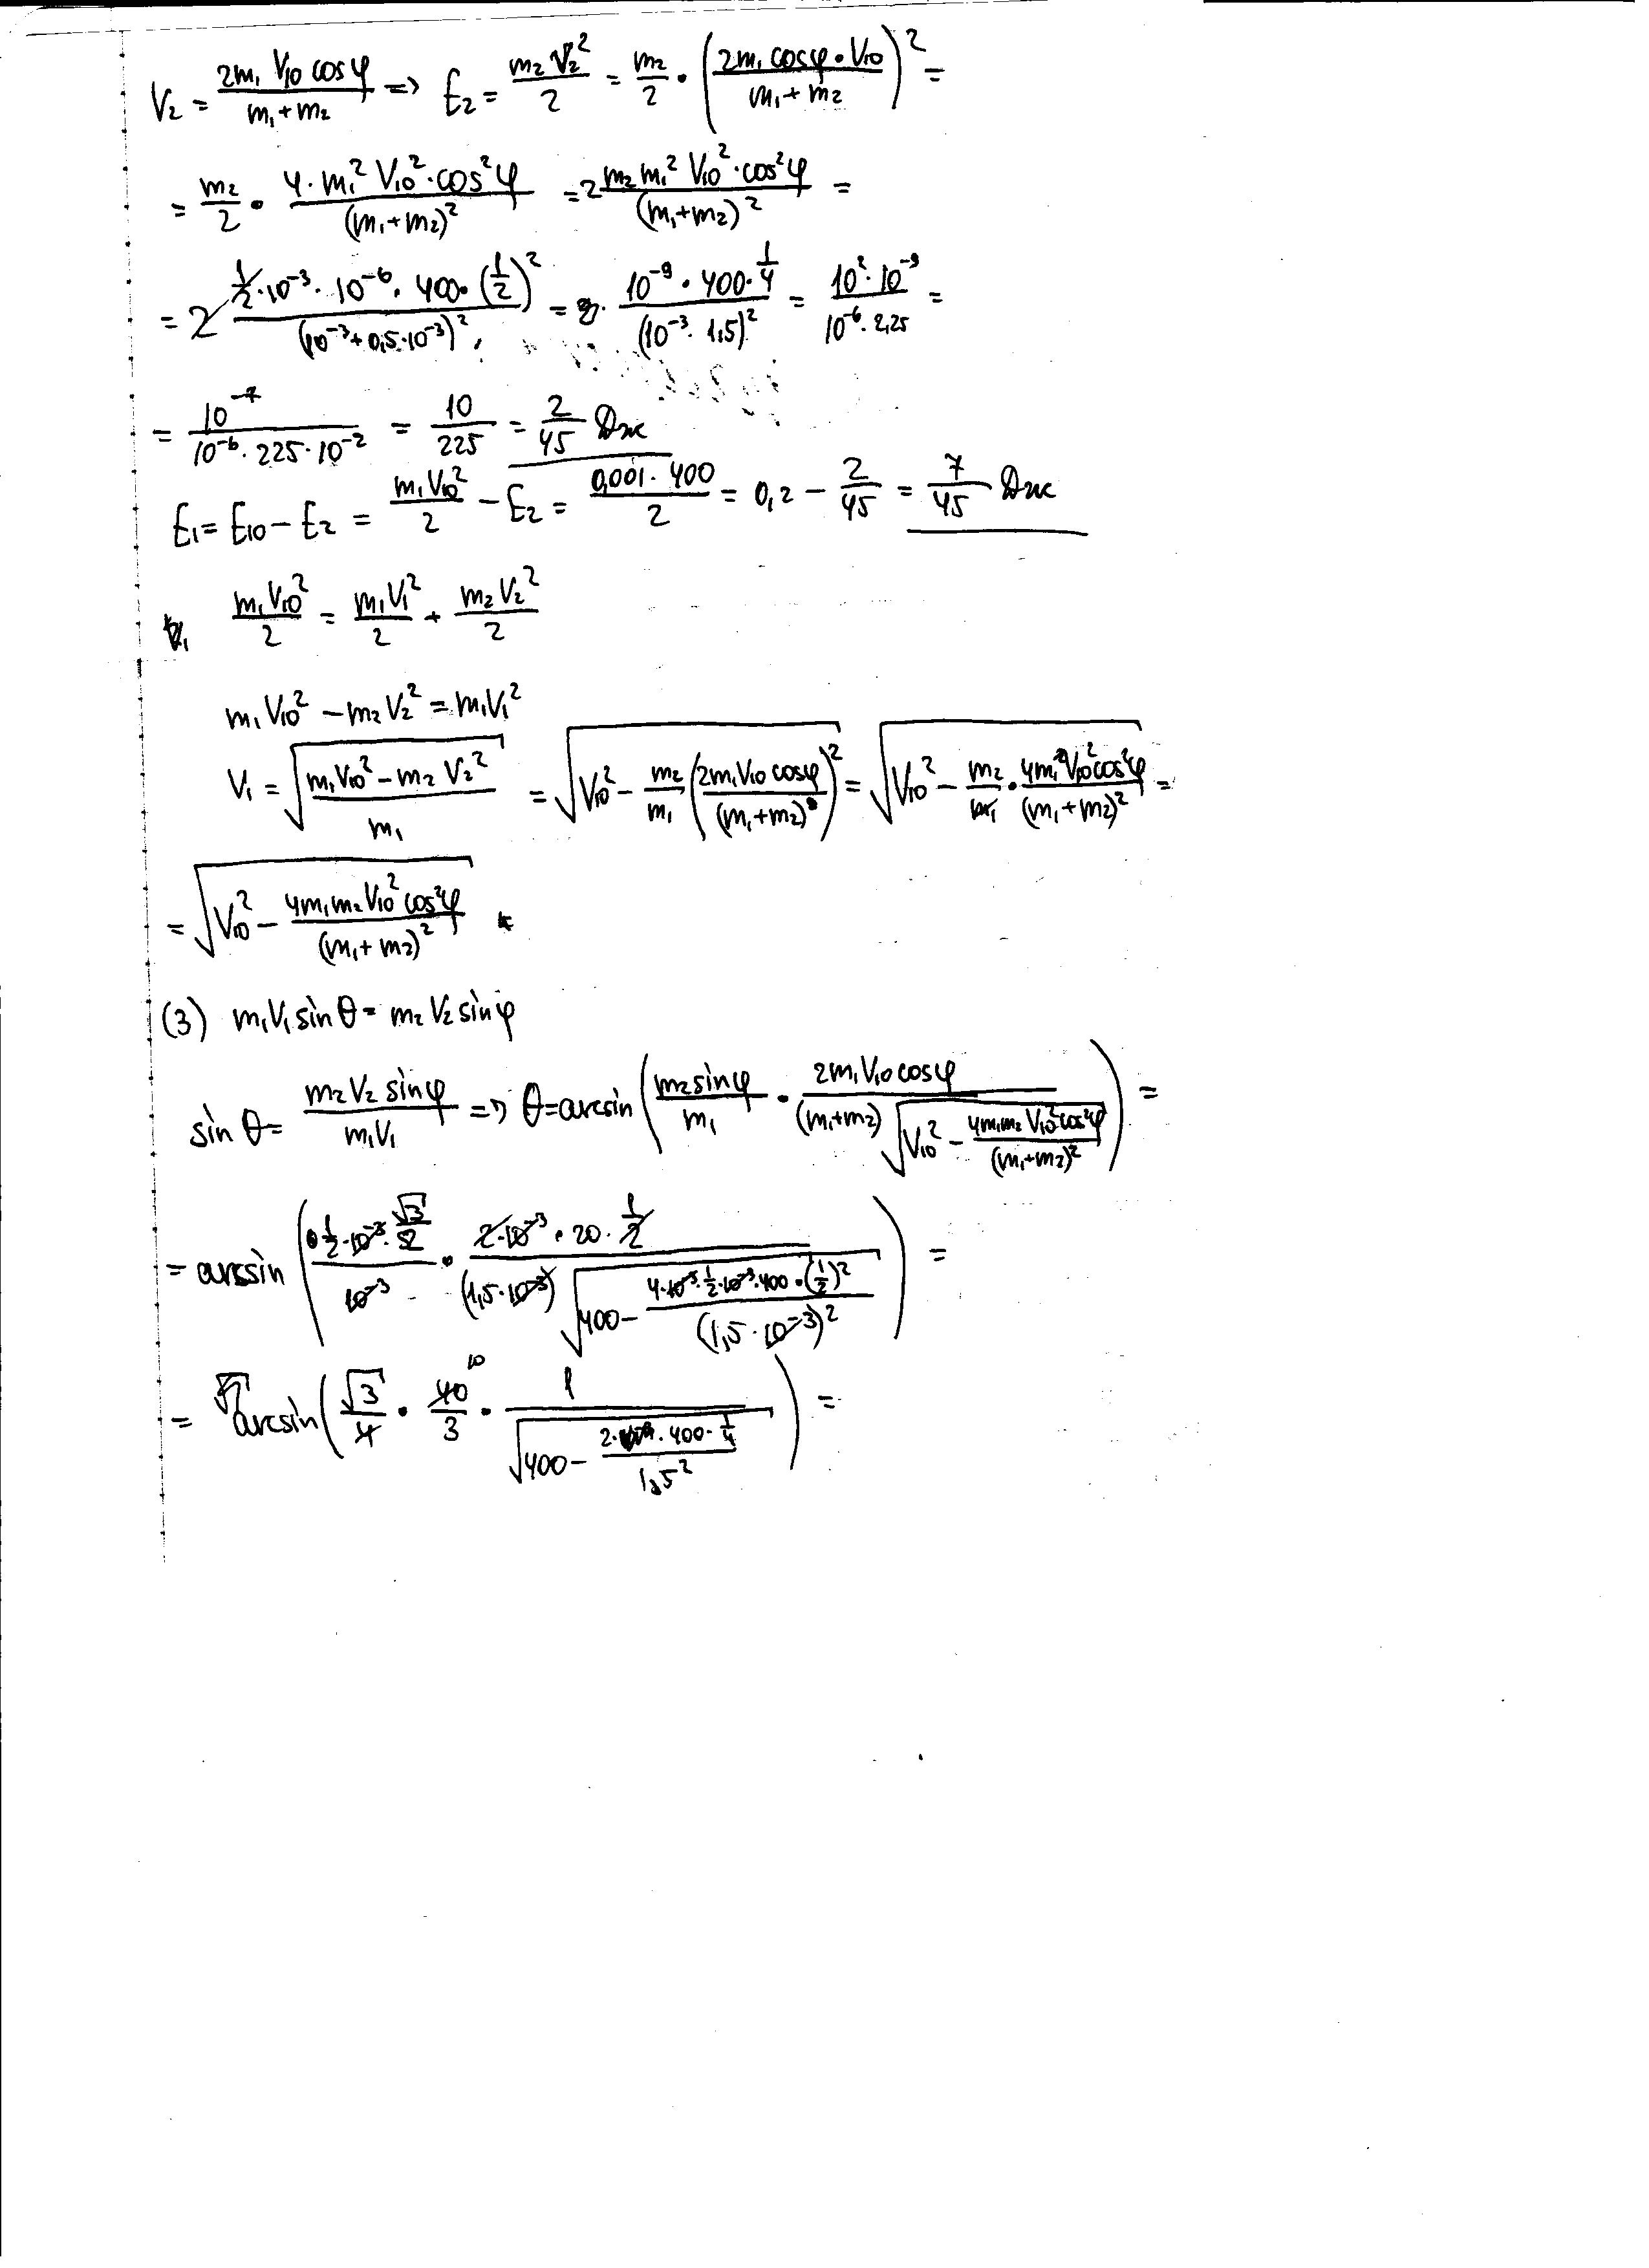 V₂ = 2m₁ V₁₀ cos φ / (m₁+m₂) => E₂ = m₂ V₂² / 2 = m₂/2 · (2m₁ cos φ · V₁₀ / (m₁+m₂))² =
= m₂/2 · 4·m₁² V₁₀² · cos² φ / (m₁+m₂)² = 2 m₂ m₁² V₁₀² · cos² φ / (m₁+m₂)² =
= 2 ½·10⁻³ · 10⁻⁶ · 400 · (½)² / (10⁻³ + 0,5·10⁻³)² = 10⁻⁹ · 400 · ¼ / (10⁻³ · 1,5)² = 10² · 10⁻⁹ / 10⁻⁶ · 2,25 =
= 10⁻⁷ / 10⁻⁶ · 225 · 10⁻² = 10/225 = 2/45 Дж
E₁ = E₁₀ – E₂ = m₁V₁₀²/2 – E₂ = 0,001 · 400 / 2 = 0,2 – 2/45 = 7/45 Дж
m₁V₁₀²/2 = m₁V₁²/2 + m₂V₂²/2
m₁V₁₀² – m₂V₂² = m₁V₁²
V₁ = √((m₁V₁₀² – m₂V₂²) / m₁) = √(V₁₀² – m₂/m₁ (2m₁V₁₀ cos φ / (m₁+m₂))²) = √(V₁₀² – m₂/m₁ · 4m₁²V₁₀² cos² φ / (m₁+m₂)²) =
= √(V₁₀² – 4m₁m₂V₁₀² cos² φ / (m₁+m₂)²)
(3) m₁V₁ sin θ = m₂ V₂ sin φ
sin θ = m₂ V₂ sin φ / m₁V₁ => θ = arcsin (m₂ sin φ / m₁ · 2m₁V₁₀ cos φ / (m₁+m₂) √(V₁₀² – 4m₁m₂V₁₀² cos² φ / (m₁+m₂)²)) =
= arcsin (½·10⁻³ · √3/2 / 10⁻³ · 2·10⁻³ · 20 · ½ / (1,5·10⁻³) √(400 – 4·10⁻³·½·10⁻³·400·(½)² / (1,5·10⁻³)²)) =
= arcsin (√3/4 · 40/3 · 1 / √(400 – 2·400·¼ / 1,5²)) =